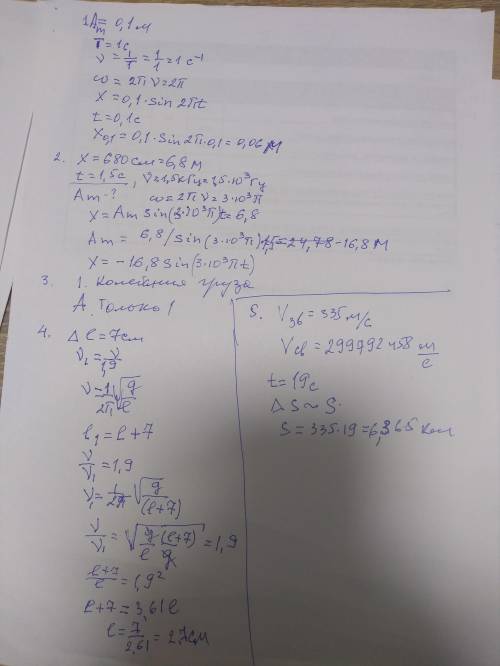 1 Am = 0,1 м
T = 1c
ν = 1/T = 1/1 = 1 c⁻¹
ω = 2πν = 2π
x = 0,1·sin 2πt
t = 0,1c
x0,1 = 0,1·sin 2π·0,1 = 0,06 м
2. x = 680 см = 6,8 м
t = 1,5c, ν = 1,5 кГц = 1,5·10³ Гц
Am - ? ω = 2πν = 3·10³π
x = Am sin(3·10³π)t = 6,8
Am = 6,8/sin(3·10³π) = -16,8 м
x = -16,8 sin(3·10³πt)
3. 1. Колебания груза
А. Только 1
4. Δl = 7см
ν1 = ν/1,9
ν = 1/2π √g/l
l1 = l+7
ν/ν1 = 1,9
ν1 = 1/2π √g/(l+7)
ν/ν1 = √g(l+7)/l g = 1,9
l+7/l = 1,9²
l+7 = 3,61l
l = 7/2,61 = 2,7см
5. Vзв = 335 м/с
Vсв = 299792458 м/с
t = 19c
ΔS ~ S
S = 335·19 = 6,365 км